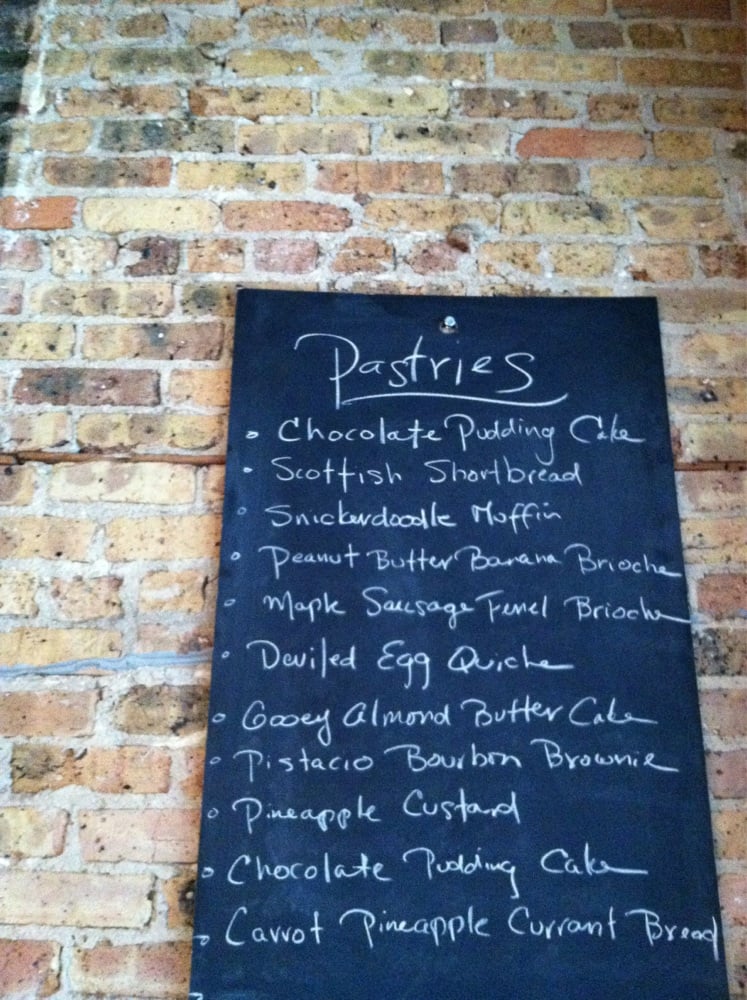 Pastries
Chocolate Pudding Cake
Scottish Shortbread
Snickerdoodle Muffin
Peanut Butter Banana Brioche
Maple Sausage Fennel Brioche
Deviled Egg Quiche
Gooey Almond Butter Cake
Pistacio Bourbon Brownie
Pineapple Custard
Chocolate Pudding Cake
Carrot Pineapple Currant Bread